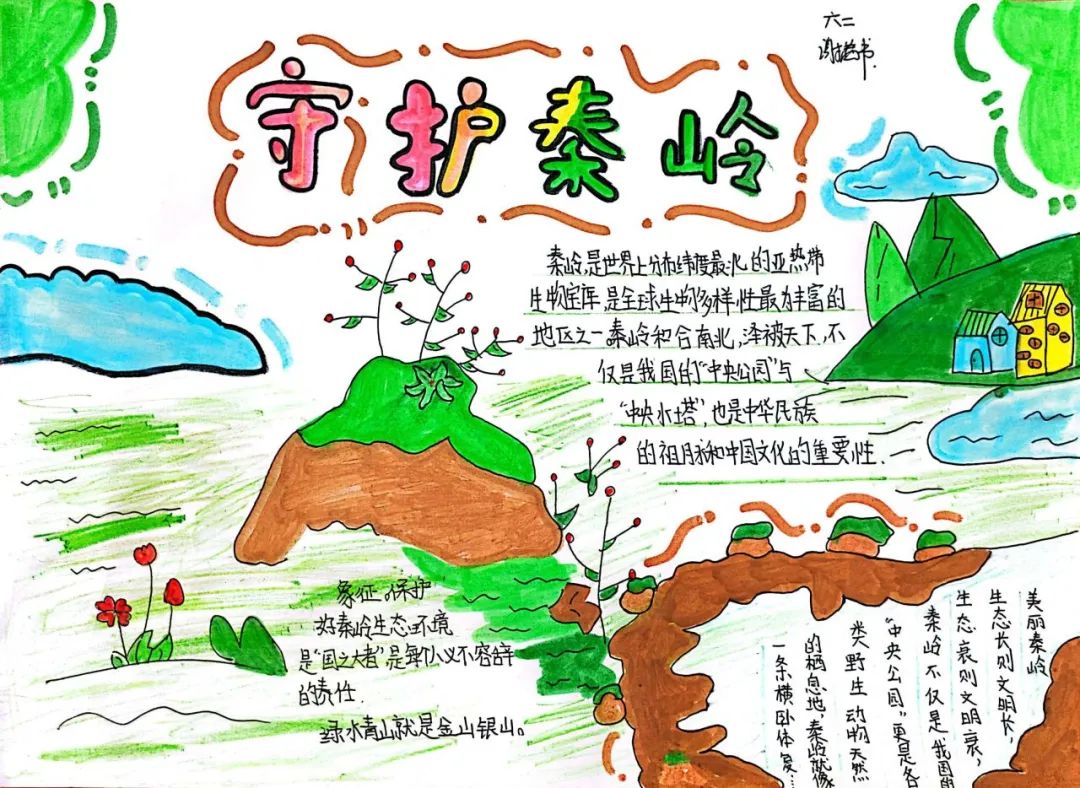 六二
守护秦岭
秦岭,是世界上分布纬度最北的亚热带
生物宝库,是全球生物多样性最为丰富的
地区之一秦岭和合南北,泽被天下,不
仅是我国的“中央公园”与
“中央水塔”,也是中华民族
的祖脉和中国文化的重要性.
象征。保护
好秦岭生态环境
是“国之大者”是 义不容辞
的责任.
绿水青山就是金山银山。
美丽秦岭
生态长则文明长,
生态衰则文明衰,
秦岭不仅是我国的
“中央公园”更是各
类野生动物天然
的栖息地,秦岭就像
一条横卧体复…